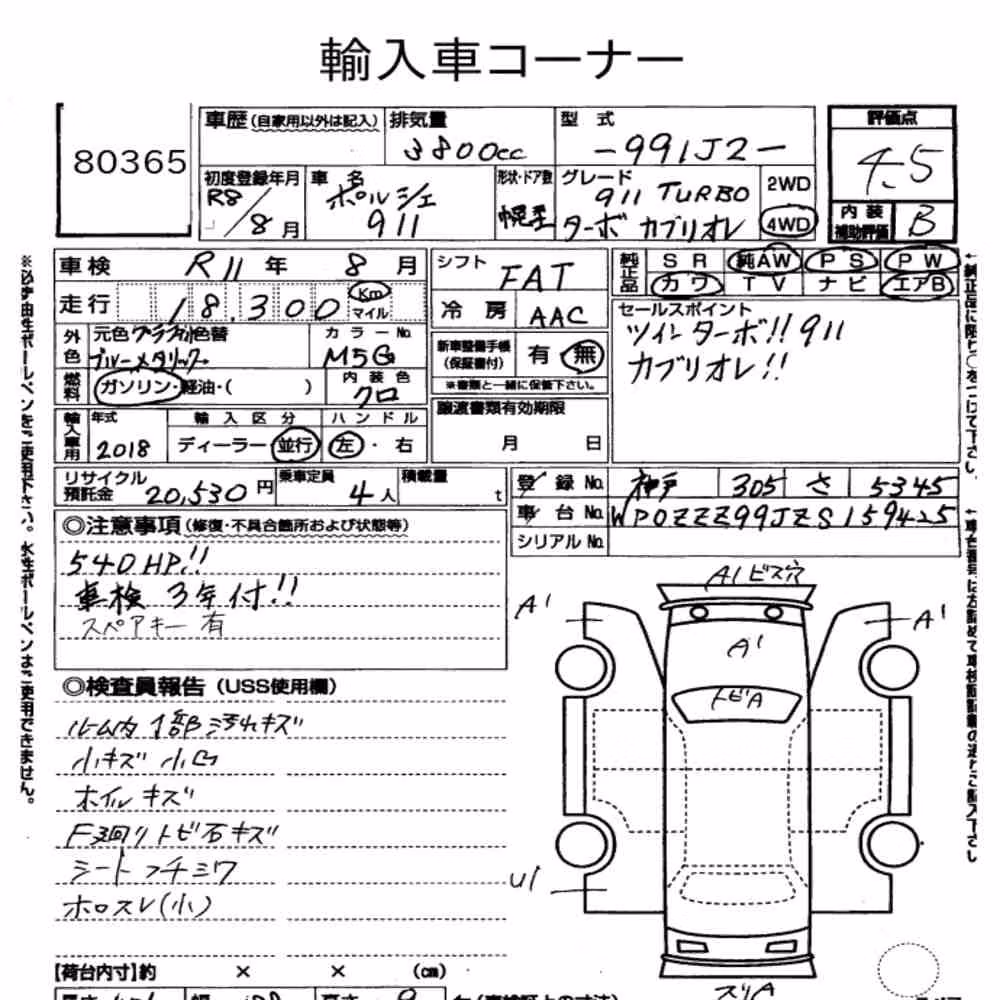 輸入車コーナー
80365
車歴 (自家用以外は記入)
排気量
3800cc
型式
-991J2-
評価点
4.5
初度登録年月
R8/8月
車名
ポルシェ
911
形状・ドア数
グレード
911 TURBO
ターボ カブリオレ
2WD
4WD
内装
補助評価
B
車検 R11年 8月
走行 18.300 Km
マイル
外色
元色
色替
ブルーメタリック
カラーNo.
M5G
燃料
ガソリン・軽油・( )
内装色
クロ
輸入車用
年式
2018
輸入区分
ディーラー・並行
ハンドル
左・右
シフト
FAT
冷房
AAC
新車整備手帳
(保証書付)
有 無
※書類と一緒に保管下さい。
譲渡書類有効期限
月 日
純正品
SR 純AW PS PW
カワ TV ナビ エアB
セールスポイント
ツインターボ!! 911
カブリオレ!!
リサイクル
預託金
20,530円
乗車定員
4人
積載量
t
登録No. 神戸 305 さ 5345
車台No. WP0ZZZ99JZS159425
シリアルNo.
◎注意事項 (修復・不具合箇所および状態等)
540HP!!
車検 3年付!!
スペアキー有
◎検査員報告 (USS使用欄)
ルーム内 1部汚れキズ
小キズ 小凹
ホイルキズ
F廻りトビ石キズ
シートフチシワ
ホロスレ(小)
A1ビス穴
A1
A1
A1
トビA
U1
スリA
【荷台内寸】約 × × (cm)
※必ず油性ボールペンをご使用下さい。水性ボールペンはご使用できません。